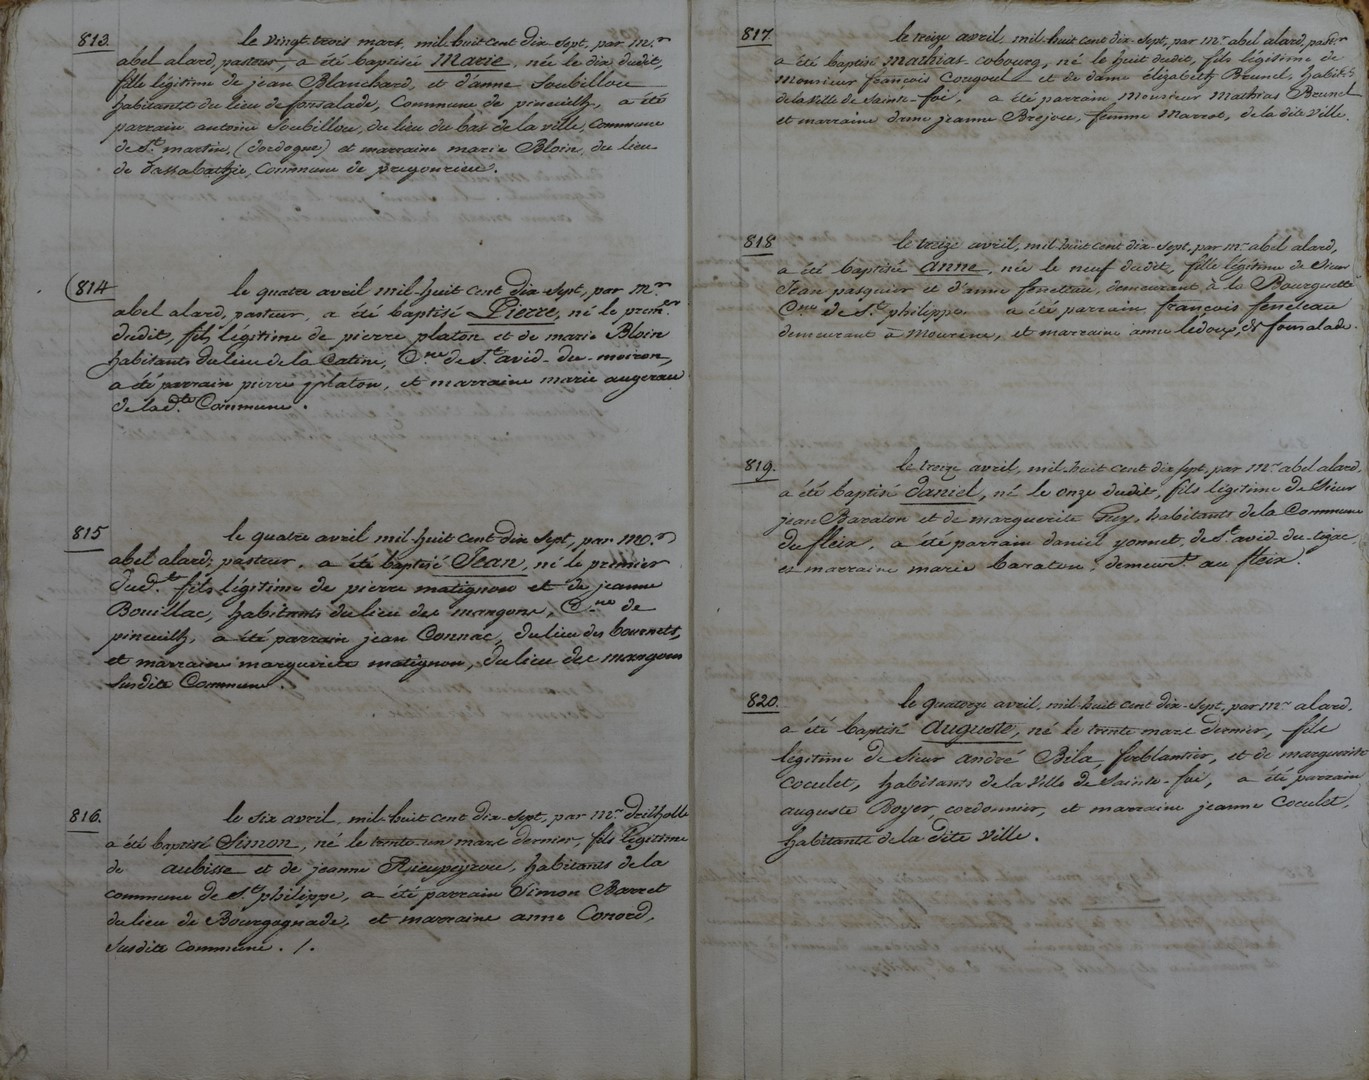 813. le vingt trois mars, mil huit cent dix sept, par m.r
abel alard, pasteur, a été baptisée Marie, née le dix dudit,
fille légitime de jean Blanchard, et d'anne Soubillou
habitants du lieu de fonsalade, Commune de pineuilh, a été
parrain antoine Soubillou, du lieu du bas de la ville, commune
de S.t martin, (dordogne) et marraine marie Bloin, du lieu
de Commune de
814 le quatre avril mil-huit cent dix-sept, par m.r
abel alard, pasteur, a été baptisé Pierre, né le prem.er
dudit, fils légitime de pierre platon et de marie Bloin
habitants du lieu de la Catine, C.ne de S.t avid-du-moiron,
a été parrain pierre platon, et marraine marie augerau
de lad.te Commune.
815 le quatre avril mil-huit cent dix sept, par m.r
abel alard, pasteur, a été baptisé Jean, né le premier
dud.t fils légitime de pierre matignon et de jeanne
Bouillac, habitants du lieu des mangons, C.ne de
pineuilh, a été parrain jean Connac, du lieu des bournets,
et marraine marguerite matignon, du lieu des mangons
susdite Commune.
816. le six avril, mil-huit cent dix-sept, par m.r drilholle
a été baptisé Simon, né le trente-un mars dernier, fils légitime
de aubisse et de jeanne Rieupeyrou, habitants de la
commune de S.t philippe, a été parrain Simon Barret
du lieu de Bourgagnade, et marraine anne Conord,
susdite commune. /.
817 le treize avril, mil-huit cent dix-sept, par m.r abel alard, past.r
a été baptisé mathias cobourg, né le huit dudit, fils légitime de
Monsieur françois Cougoul et de dame élizabeth Brunel, habit.ts
de la ville de Sainte-foi, a été parrain Monsieur Mathias Brunel
et marraine dame jeanne Brejou, femme Marrot, de la dite Ville.
818 le treize avril, mil-huit cent dix-sept, par m.r abel alard,
a été baptisée anne, née le neuf dudit, fille légitime de Sieur
Jean pasquier et d'anne feneteau, demeurant à la Bourguette
C.ne de S.t philippe a été parrain françois feneteau
demeurant à Mourene, et marraine anne ledoux, de fonsalade.
819. le treize avril, mil-huit cent dix sept, par m.r abel alard,
a été baptisé daniel, né le onze dudit, fils légitime de Sieur
jean Baraton et de marguerite Guy, habitants de la Commune
du fleix, a été parrain daniel yonnet, de S.t avid du-tizac,
et marraine marie baraton, demeur.t au fleix.
820. le quatorze avril, mil-huit cent dix-sept, par m.r alard.
a été baptisé auguste, né le trente mars dernier, fils
légitime de Sieur andré Bila, ferblantier, et de marguerite
coculet, habitants de la ville de Sainte-foi, a été parrain
auguste Boyer, cordonnier, et marraine jeanne Coculet,
habitants de la dite ville.